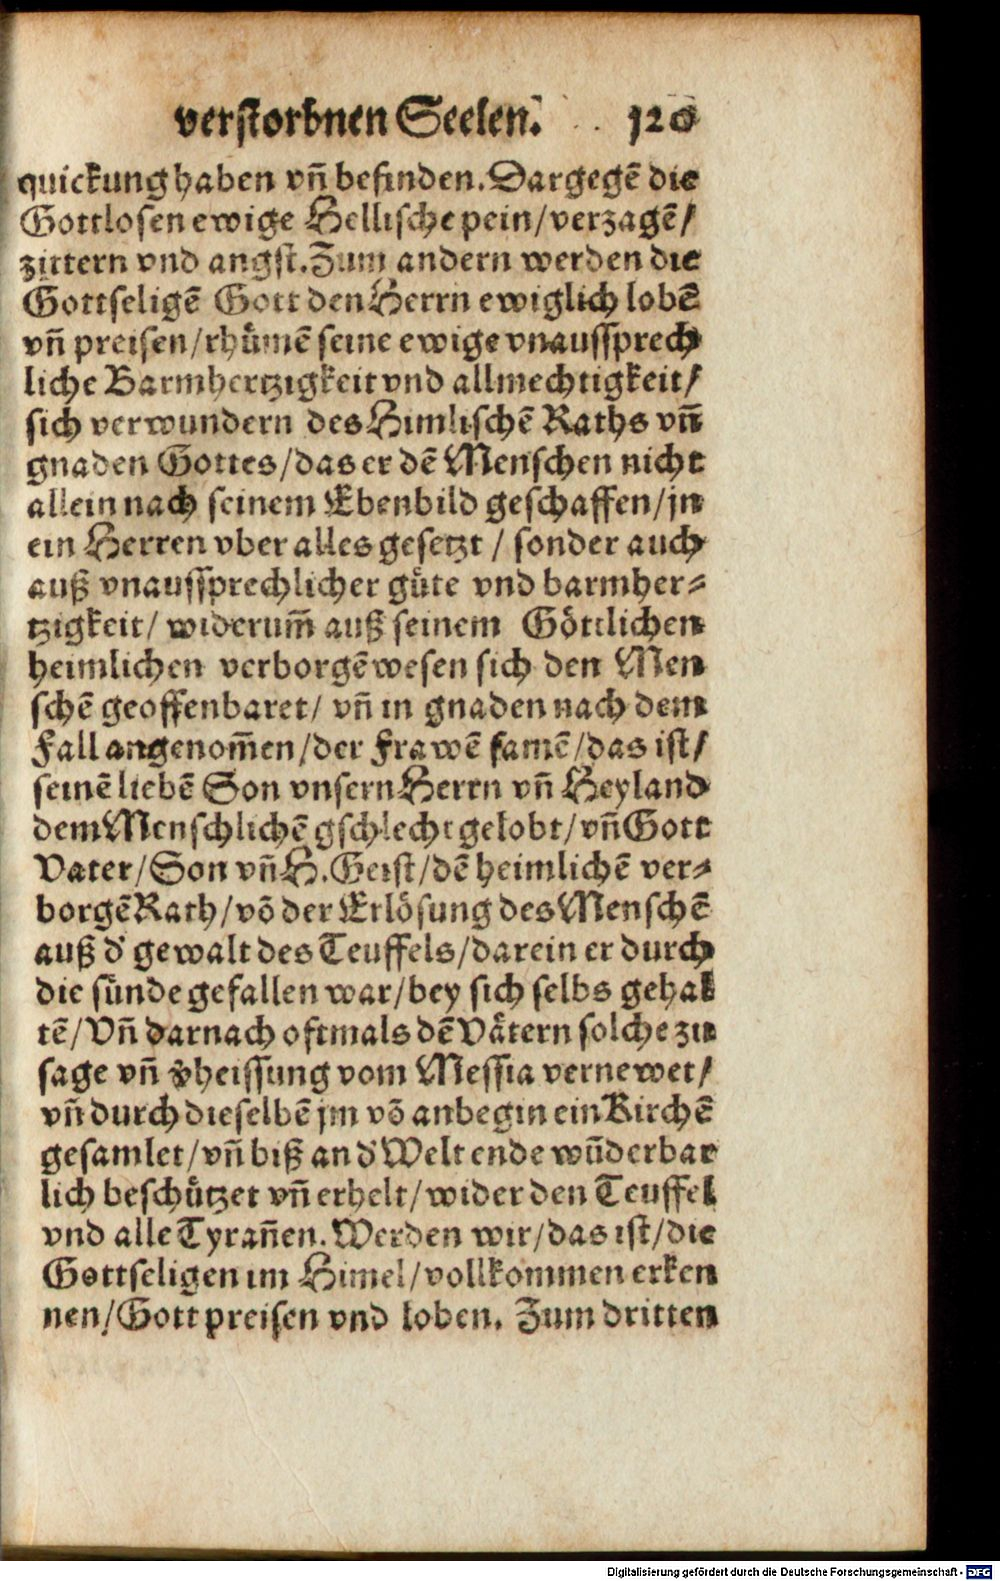 verstorbnen Seelen. 120
quickung haben vñ befinden. Dargegẽ die
Gottlosen ewige Hellische pein/verzagẽ/
zittern vnd angst. Zum andern werden die
Gottseligẽ Gott den Herrn ewiglich lobẽ
vñ preisen/rhümẽ seine ewige vnaussprech
liche Barmhertzigkeit vnd allmechtigkeit/
sich verwundern des Himlischẽ Raths vñ
gnaden Gottes/das er dẽ Menschen nicht
allein nach seinem Ebenbild geschaffen/jn
ein Herren vber alles gesetzt / sonder auch
auß vnaussprechlicher güte vnd barmher-
tzigkeit/ widerum̃ auß seinem Göttlichen
heimlichen verborgẽ wesen sich den Men
schẽ geoffenbaret/ vñ in gnaden nach dem
Fall angenom̃en/der Frawẽ samẽ/das ist/
seinẽ liebẽ Son vnsern Herrn vñ Heyland
dem Menschlichẽ gschlecht gelobt/vñ Gott
Vater/Son vñ H. Geist/dẽ heimlichẽ ver-
borgẽ Rath/võ der Erlösung des Menschẽ
auß d' gewalt des Teuffels/darein er durch
die sünde gefallen war/bey sich selbs gehal
tẽ/Vñ darnach oftmals dẽ Vätern solche zu
sage vñ v̓heissung vom Messia vernewet/
vñ durch dieselbẽ jm võ anbegin ein Kirchẽ
gesamlet/vñ biß an d' Welt ende wũderbar
lich beschützet vñ erhelt/wider den Teuffel
vnd alle Tyrañen. Werden wir/das ist/die
Gottseligen im Himel/vollkommen erken
nen/Gott preisen vnd loben. Zum dritten
Digitalisierung gefördert durch die Deutsche Forschungsgemeinschaft - DFG